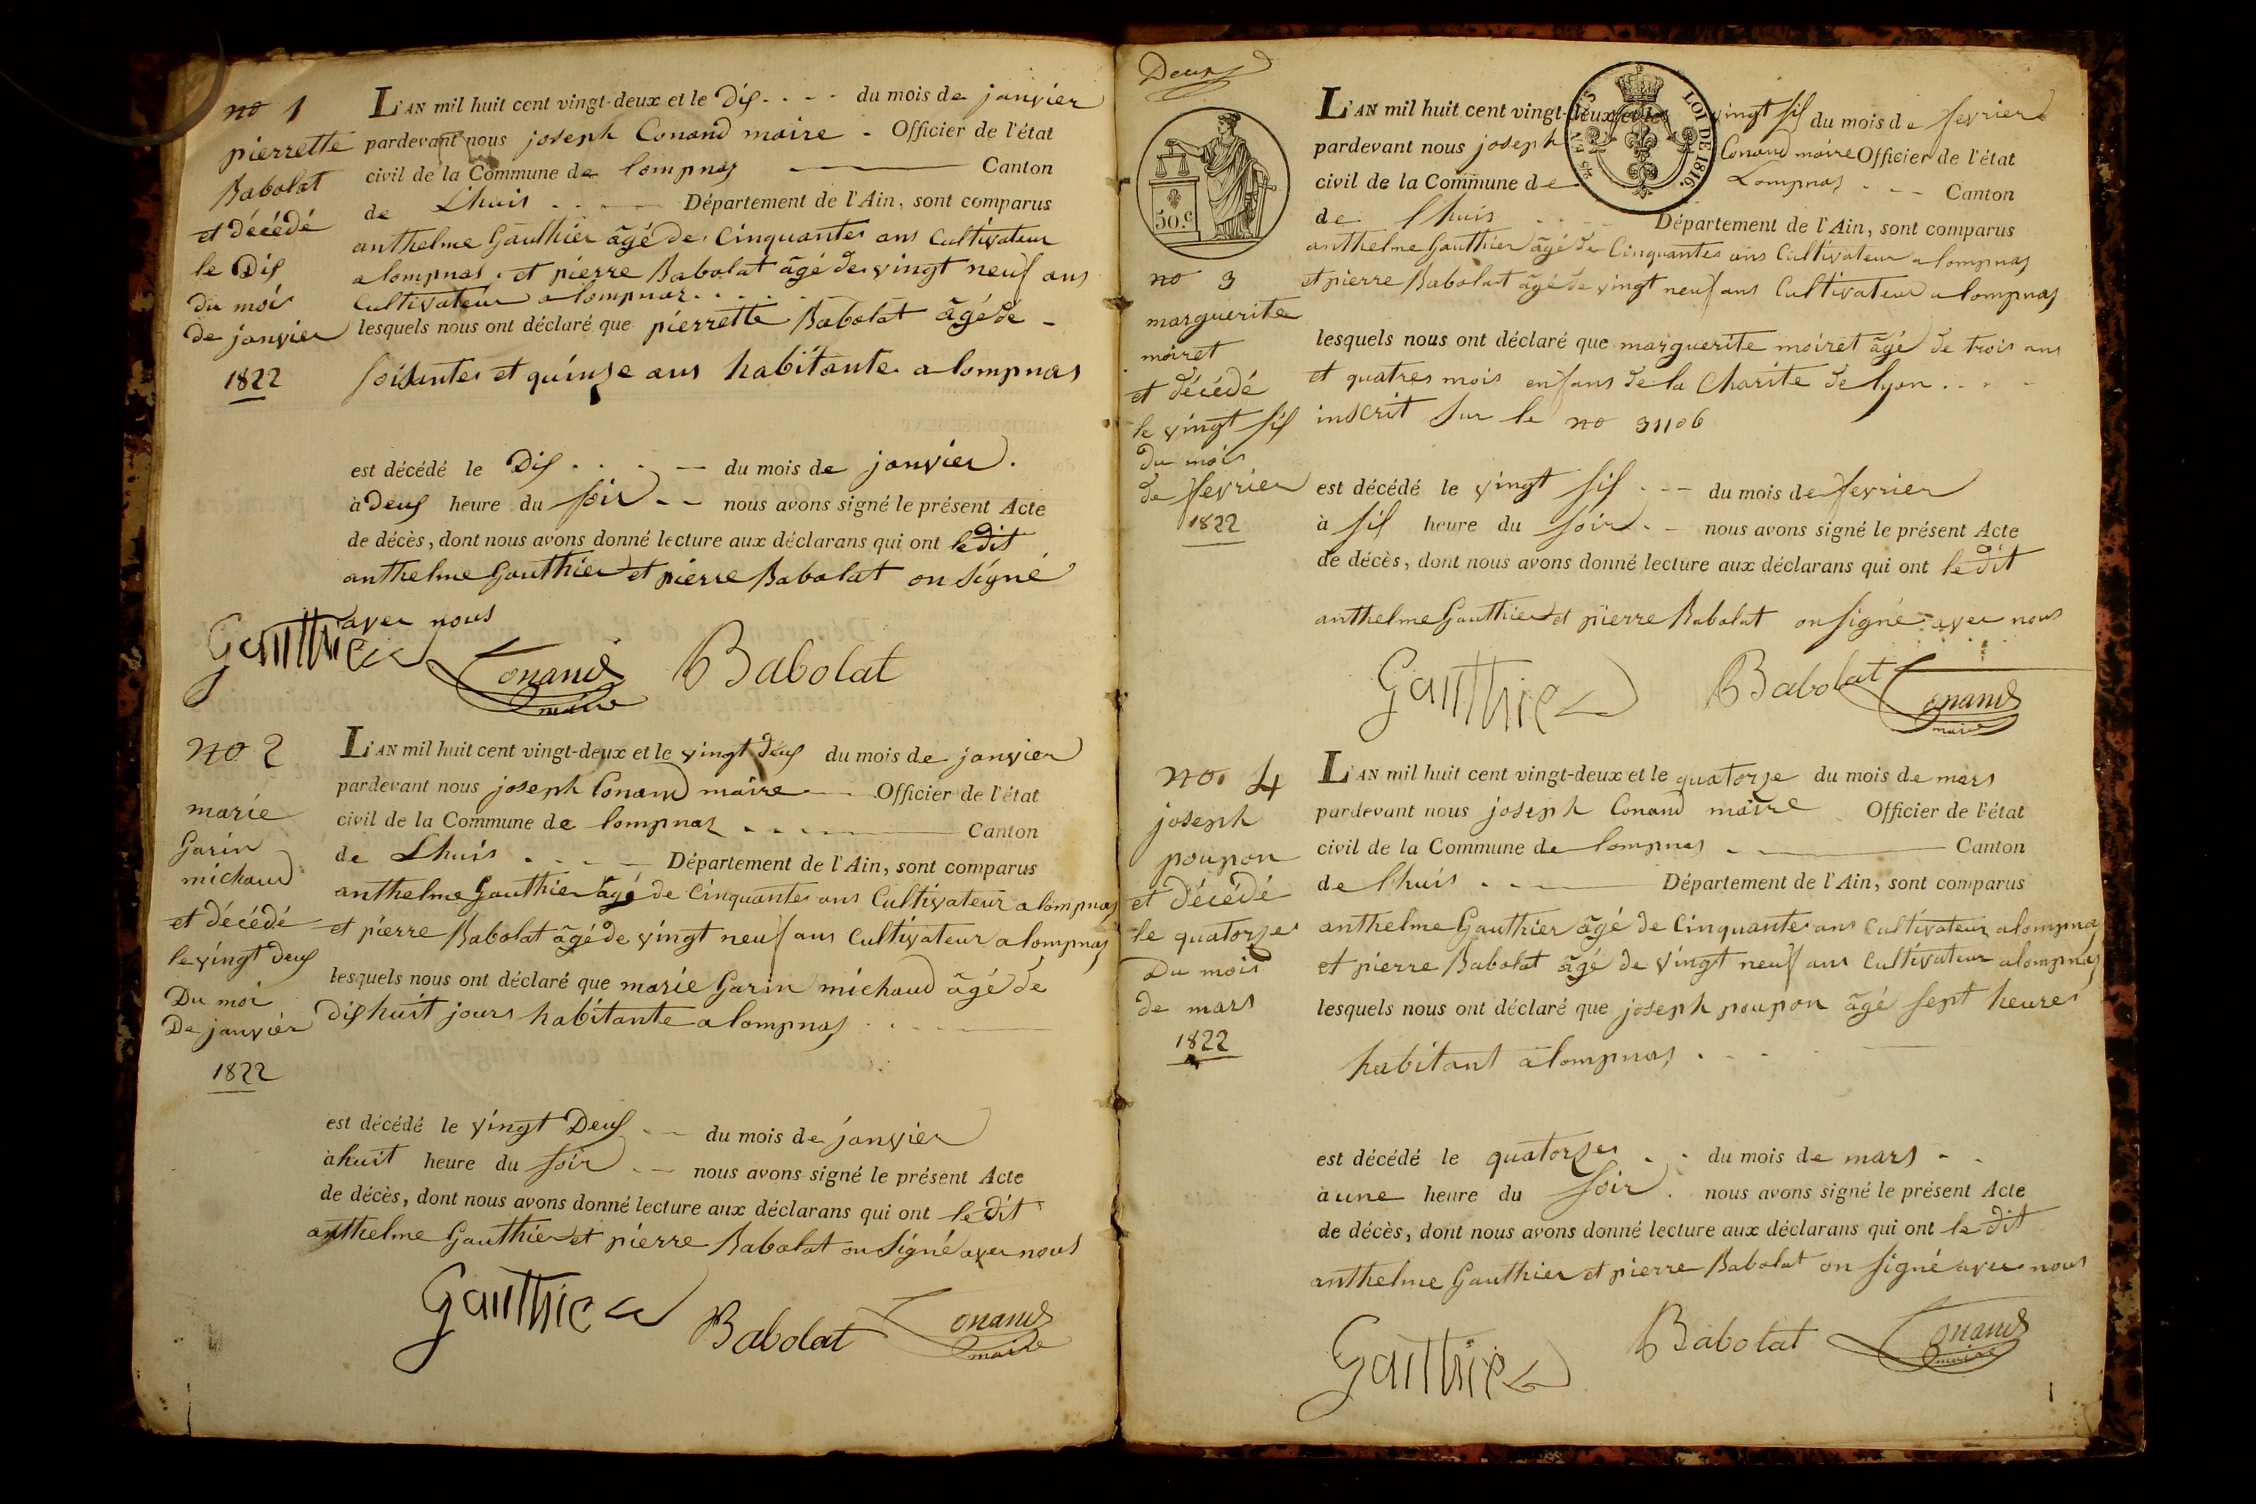 no 1
pierrette
Babolat
et décédé
le Dix
du moi
de janvier
1822
L'AN mil huit cent vingt-deux et le Dix du mois de janvier
pardevant nous joseph Conand maire Officier de l'état
civil de la Commune de lompnas Canton
de Lhuis Département de l'Ain, sont comparus
anthelme Gauthier âgé de Cinquantes ans Cultivateur
a lompnas et pierre Babolat âgé de vingt neuf ans
Cultivateur a lompnas
lesquels nous ont déclaré que pierrette Babolat âgé de
soisantes et quinse ans habitante a lompnas
est décédé le Dix du mois de janvier
à deux heure du soir nous avons signé le présent Acte
de décès, dont nous avons donné lecture aux déclarans qui ont le dit
anthelme Gauthier et pierre Babolat on signé
avec nous
Gauthier Conand maire Babolat
no 2
marie
Garin
michaud
et décédé
le vingt deux
Du moi
De janvier
1822
L'AN mil huit cent vingt-deux et le vingt deux du mois de janvier
pardevant nous joseph Conand maire Officier de l'état
civil de la Commune de lompnas Canton
de Lhuis Département de l'Ain, sont comparus
anthelme Gauthier âgé de Cinquantes ans Cultivateur a lompnas
et pierre Babolat âgé de vingt neuf ans Cultivateur a lompnas
lesquels nous ont déclaré que marie Garin michaud âgé de
dix huit jours habitante a lompnas
est décédé le vingt Deux du mois de janvier
à huit heure du soir nous avons signé le présent Acte
de décès, dont nous avons donné lecture aux déclarans qui ont le dit
anthelme Gauthier et pierre Babolat on signé avec nous
Gauthier Babolat Conand maire
Deux
50 c.
LOI DE 1816.
no 3
marguerite
moiret
et décédé
le vingt six
du mois
de fevrier
1822
L'AN mil huit cent vingt-deux et le vingt six du mois de fevrier
pardevant nous joseph Conand maire Officier de l'état
civil de la Commune de Lompnas Canton
de lhuis Département de l'Ain, sont comparus
anthelme Gauthier âgé de Cinquantes ans Cultivateur a lompnas
et pierre Babolat âgé de vingt neuf ans Cultivateur a lompnas
lesquels nous ont déclaré que marguerite moiret âgé de trois ans
et quatres mois enfans de la Charite de lyon
inscrit sur le no 31106
est décédé le vingt six du mois de fevrier
à six heure du soir nous avons signé le présent Acte
de décès, dont nous avons donné lecture aux déclarans qui ont le dit
anthelme Gauthier et pierre Babolat on signé avec nous
Gauthier Babolat Conand maire
no. 4
joseph
poupon
et décédé
le quatorze
Du mois
de mars
1822
L'AN mil huit cent vingt-deux et le quatorze du mois de mars
pardevant nous joseph Conand maire Officier de l'état
civil de la Commune de lompnas Canton
de lhuis Département de l'Ain, sont comparus
anthelme Gauthier âgé de Cinquantes ans Cultivateur a lompnas
et pierre Babolat âgé de vingt neuf ans Cultivateur a lompnas
lesquels nous ont déclaré que joseph poupon âgé sept heures
habitant a lompnas
est décédé le quatorzes du mois de mars
à une heure du soir nous avons signé le présent Acte
de décès, dont nous avons donné lecture aux déclarans qui ont le dit
anthelme Gauthier et pierre Babolat on signé avec nous
Gauthier Babolat Conand maire